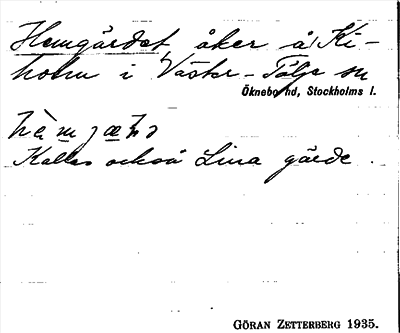 Hemgärdet, åker å Ki-
holm i Väster-Tälje sn
Öknebo hd, Stockholms l.
Kallas också Lina gärde.
GÖRAN ZETTERBERG 1935.